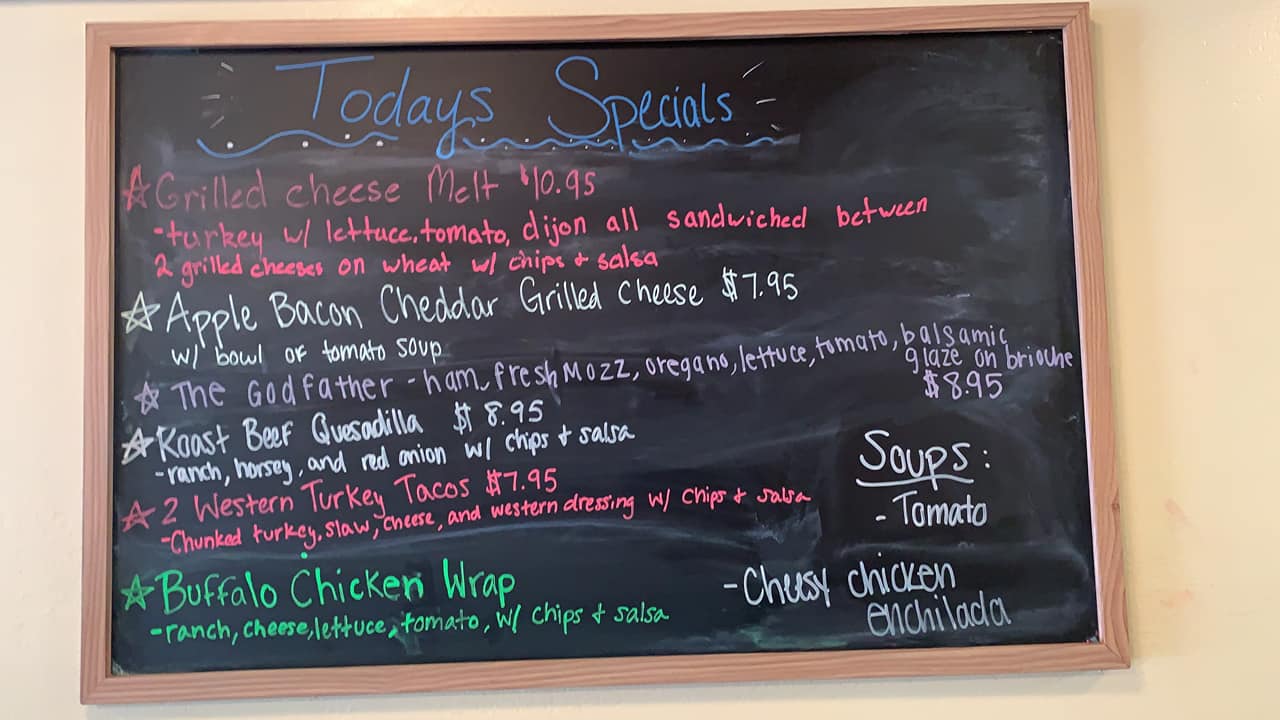 Todays Specials
Grilled cheese Melt $10.95
-turkey w/ lettuce, tomato, dijon all sandwiched between
2 grilled cheeses on wheat w/ chips + salsa
Apple Bacon Cheddar Grilled Cheese $7.95
w/ bowl of tomato soup
The Godfather - ham, fresh Mozz, oregano, lettuce, tomato, balsamic
glaze on brioche
$8.95
Roast Beef Quesadilla $8.95
-ranch, horsey, and red onion w/ chips + salsa
2 Western Turkey Tacos $7.95
-Chunked turkey, slaw, cheese, and western dressing w/ chips + salsa
Buffalo Chicken Wrap
-ranch, cheese, lettuce, tomato, w/ chips + salsa
Soups:
- Tomato
- Cheesy chicken
enchilada